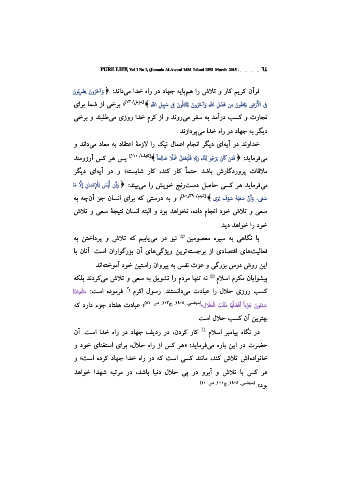 PURE LIFE, Vol 3 No 5, (Jumada Al-Awwal 1436 / March 2015) . . . . . ٦٤
قرآن کریم کار و تلاش را هم‌پایه جهاد در راه خدا می‌داند: ﴿ وَآخَرُونَ يَضْرِبُونَ
فِي الْأَرْضِ يَبْتَغُونَ مِن فَضْلِ اللَّهِ وَآخَرُونَ يُقَاتِلُونَ فِي سَبِيلِ اللَّهِ ﴾ برخی از شما برای
تجارت و کسب درآمد به سفر می‌روند و از کرم خدا روزی می‌طلبند و برخی
دیگر به جهاد در راه خدا می‌پردازند.
خداوند در آیه‌ای دیگر انجام اعمال نیک را لازمهٔ اعتقاد به معاد می‌داند و
می‌فرماید: ﴿ فَمَن كَانَ يَرْجُو لِقَاءَ رَبِّهِ فَلْيَعْمَلْ عَمَلًا صَالِحًا ﴾ پس هر کس آرزومند
ملاقات پروردگارش باشد حتماً کار کند، کار شایسته؛ و در آیه‌ای دیگر
می‌فرماید هر کسی حاصل دست‌رنج خویش را می‌بیند: ﴿ وَأَن لَّيْسَ لِلْإِنسَانِ إِلَّا مَا
سَعَى، وَأَنَّ سَعْيَهُ سَوْفَ يُرَى ﴾ و به درستی که برای انسان جز آن‌چه به
سعی و تلاش خود انجام داده، نخواهد بود و البته انسان نتیجهٔ سعی و تلاش
خود را خواهد دید.
با نگاهی به سیره معصومین نیز در می‌یابیم که تلاش و پرداختن به
فعالیت‌های اقتصادی از برجسته‌ترین ویژگی‌های آن بزرگواران است. آنان با
این روش درس بزرگی و عزت نفس به پیروان راستین خود آموخته‌اند.
پیشوایان مکرم اسلام نه تنها مردم را تشویق به سعی و تلاش می‌کردند بلکه
کسب روزی حلال را عبادت می‌دانستند. رسول اکرم فرموده است: «العبادة
سبعون جزءاً أفضلها طلب الحلال» عبادت هفتاد جزء دارد که
بهترین آن کسب حلال است.
در نگاه پیامبر اسلام کار کردن، در ردیف جهاد در راه خدا است. آن
حضرت در این باره می‌فرماید: «هر کس از راه حلال، برای استغنای خود و
خانواده‌اش تلاش کند، مانند کسی است که در راه خدا جهاد کرده است» و
هر کس با تلاش و آبرو در پی حلال دنیا باشد، در مرتبه شهدا خواهد
بود»